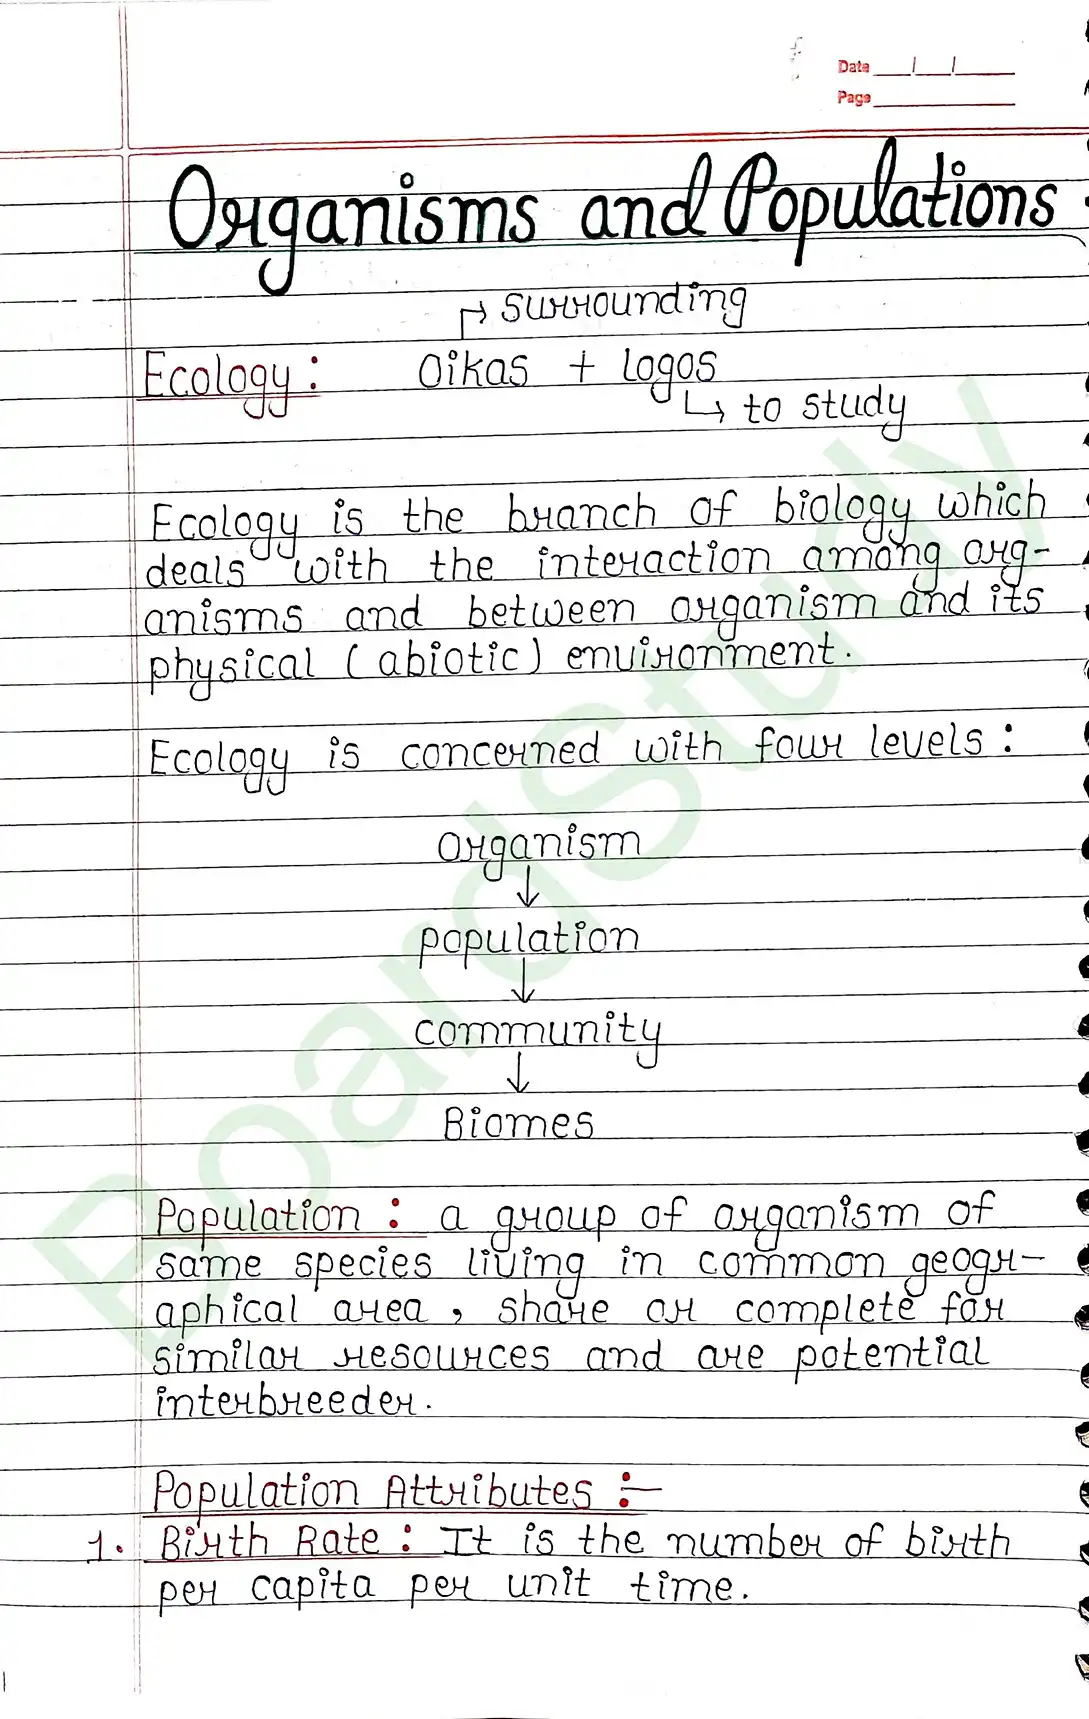 Date __/__/__
Page
Organisms and Populations
↱ surrounding
Ecology: Oikas + logos
↳ to study
Ecology is the branch of biology which
deals with the interaction among org-
anisms and between organism and its
physical (abiotic) environment.
Ecology is concerned with four levels:
organism
↓
population
↓
community
↓
Biomes
Population: a group of organism of
same species living in common geogr-
aphical area, share or complete for
similar resources and are potential
interbreeder.
Population Attributes :-
1. Birth Rate: It is the number of birth
per capita per unit time.
BoardStudy